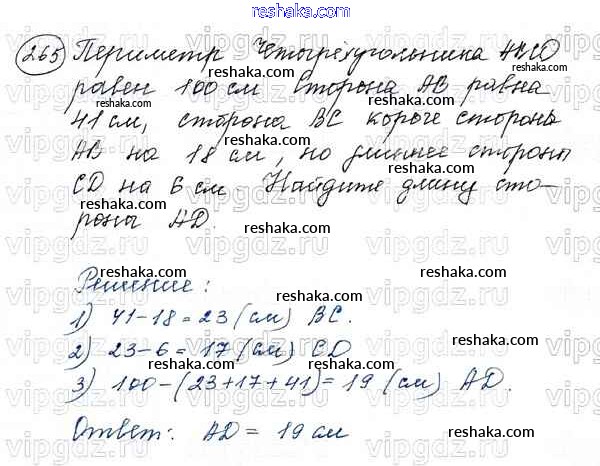 reshaka.com
265 Периметр четырёхугольника ABCD
равен 100 см Сторона AB равна
41 см, сторона BC короче стороны
AB на 18 см, но длиннее стороны
CD на 6 см. Найдите длину сто-
роны AD.
Решение:
1) 41-18=23 (см) BC.
2) 23-6=17 (см) CD
3) 100-(23+17+41)=19 (см) AD.
Ответ: AD = 19 см